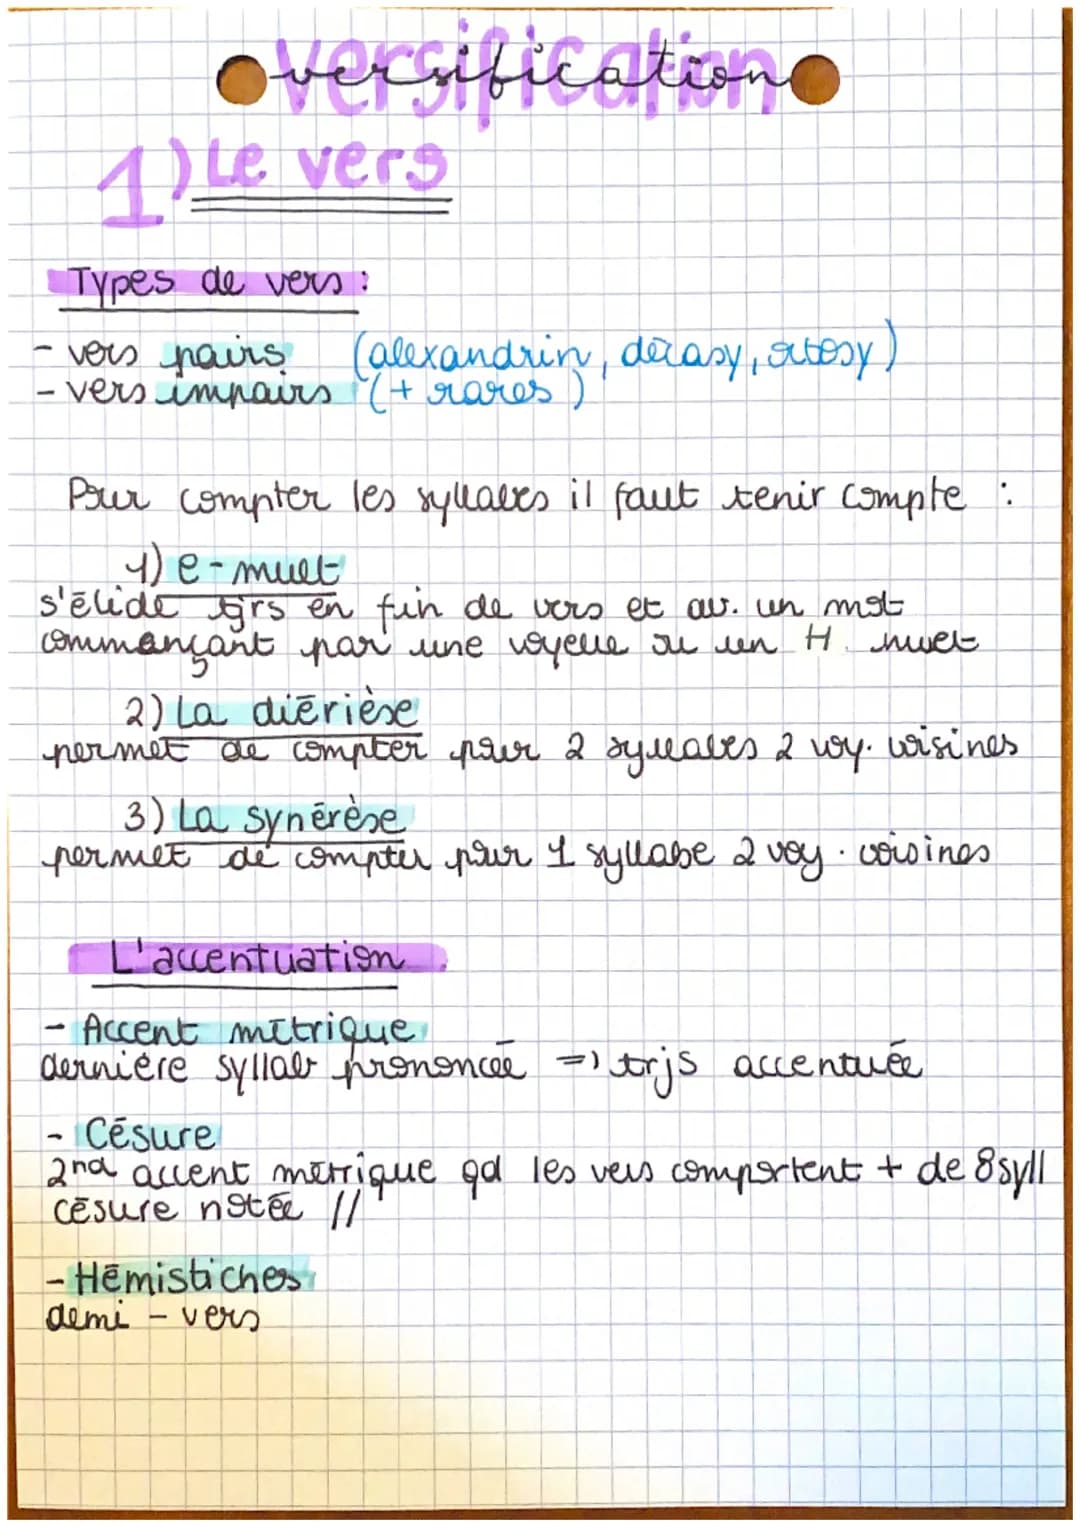 versification
1) Le vers
Types de vers :
- vers pairs (alexandrin, décasy, octosy)
- vers impairs (+ rares)
Pour compter les syllabes il faut tenir compte :
1) e-muet
s'élide tjrs en fin de vers et av. un mot
commançant par une voyelle ou un H muet
2) La diérièse
permet de compter pour 2 syllabes 2 voy. voisines
3) La synérèse
permet de compter pour 1 syllabe 2 voy. voisines
L'accentuation
- Accent métrique
dernière syllabe prononcée => trjs accentuée
- Césure
2nd accent métrique qd les vers comportent + de 8 syll
césure notée //
- Hémistiches
demi - vers